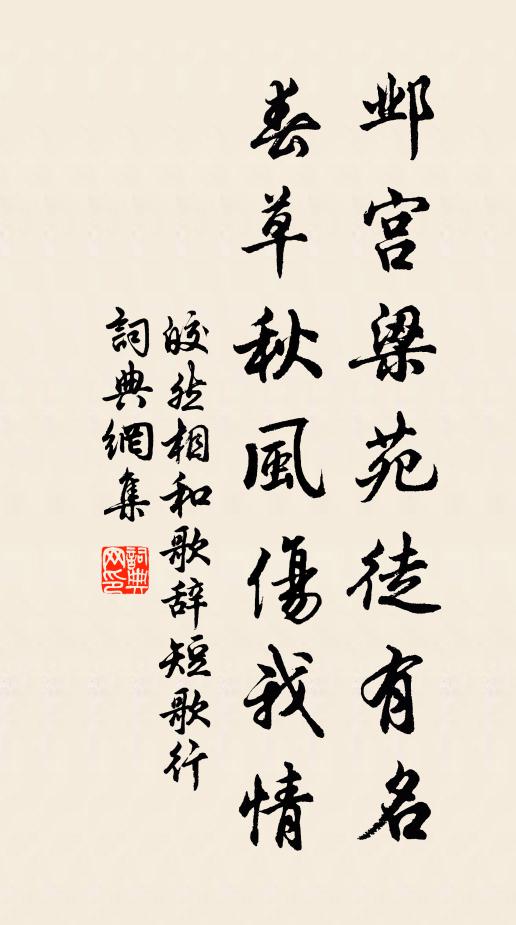 邺宫梁苑徒有名
春草秋風傷我情
皎然相和歌辞短歌行
詞典網集
詞典網印